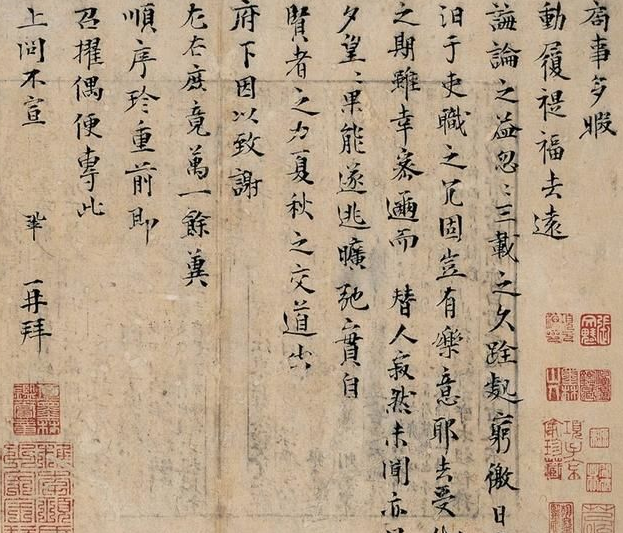 局事多暇
動履禔福去遠
誨論之益忽〻三載之久跧處窮徼日
汨于吏職之冗固豈有樂意耶去受
之期雖幸密邇而替人寂然未聞亦
夕望〻果能遂逃曠弛實自
賢者之力夏秋之交道出
府下因以致謝
左右庶竟萬一餘冀
順序珍重前即
召擢偶便專此
上問不宣 鞏 再拜
項子京家珍藏